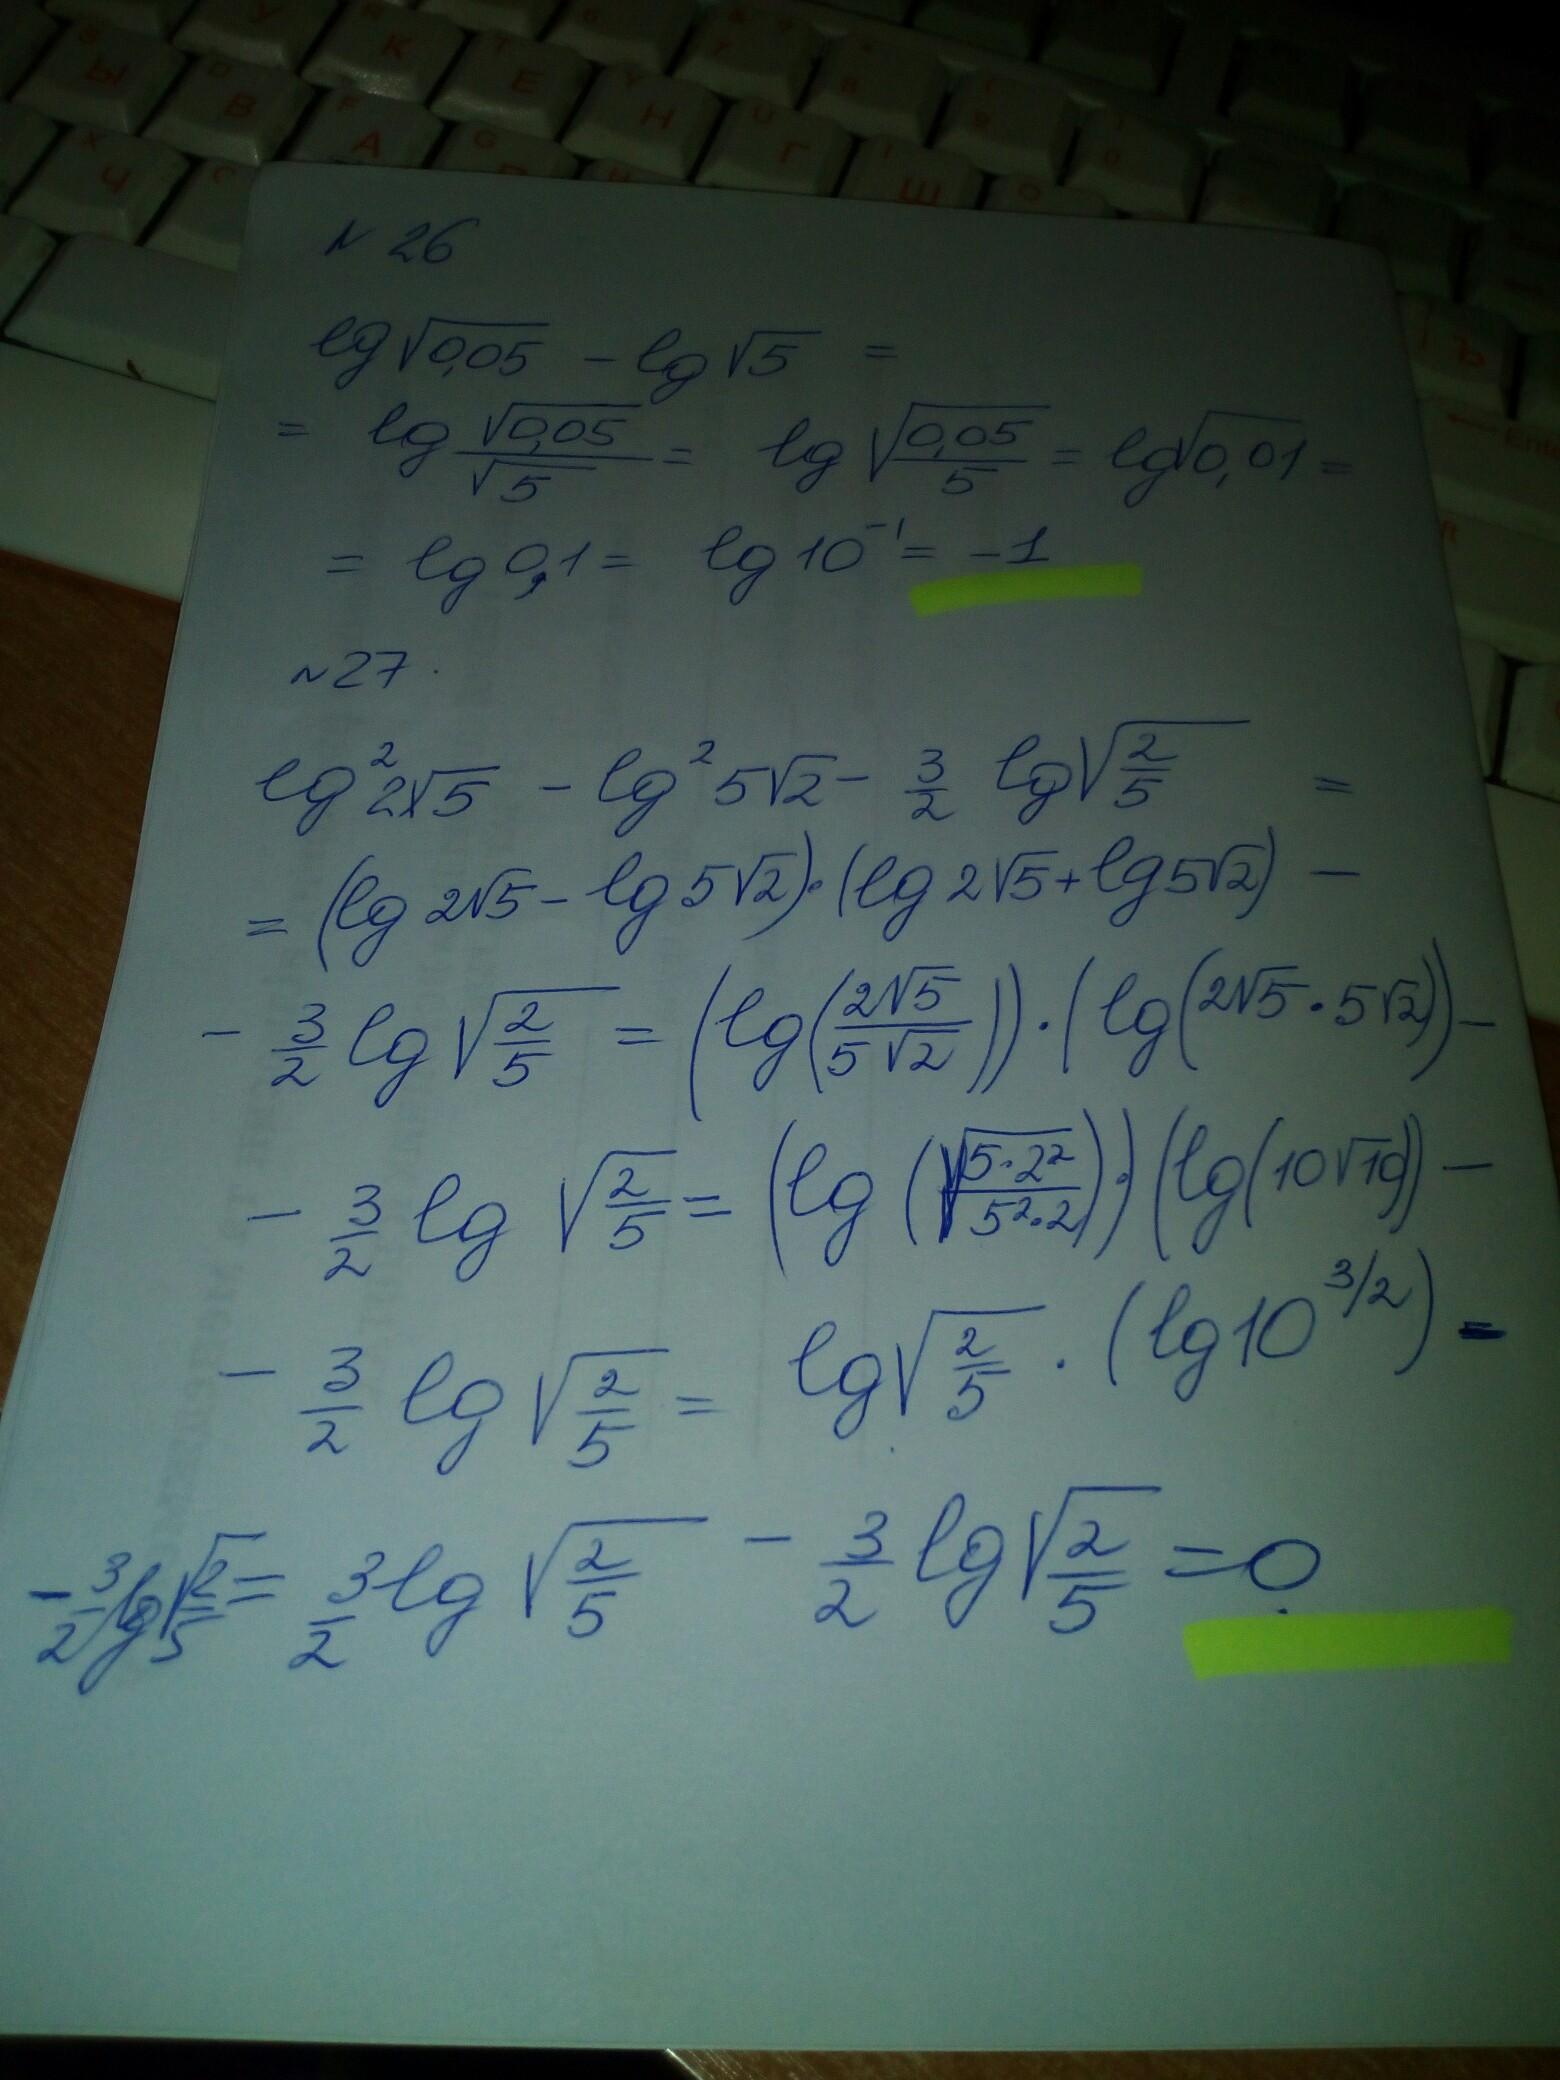 Ы В А К Е Н Г Ш Ч Ъ
Enter
N 26
lg√0,05 − lg √5 =
= lg √0,05/√5 = lg √(0,05/5) = lg√0,01 =
= lg 0,1 = lg 10⁻¹ = −1
N 27.
lg² 2√5 − lg² 5√2 − 3/2 lg√(2/5) =
= (lg 2√5 − lg 5√2)·(lg 2√5 + lg 5√2) −
− 3/2 lg √(2/5) = (lg(2√5/5√2))·(lg(2√5·5√2)) −
− 3/2 lg √(2/5) = (lg (√(5·2²/5²·2)))·(lg(10√10)) −
− 3/2 lg √(2/5) = lg√(2/5) · (lg 10^3/2) −
− 3/2 lg√(2/5) = 3/2 lg √(2/5) − 3/2 lg √(2/5) = 0.